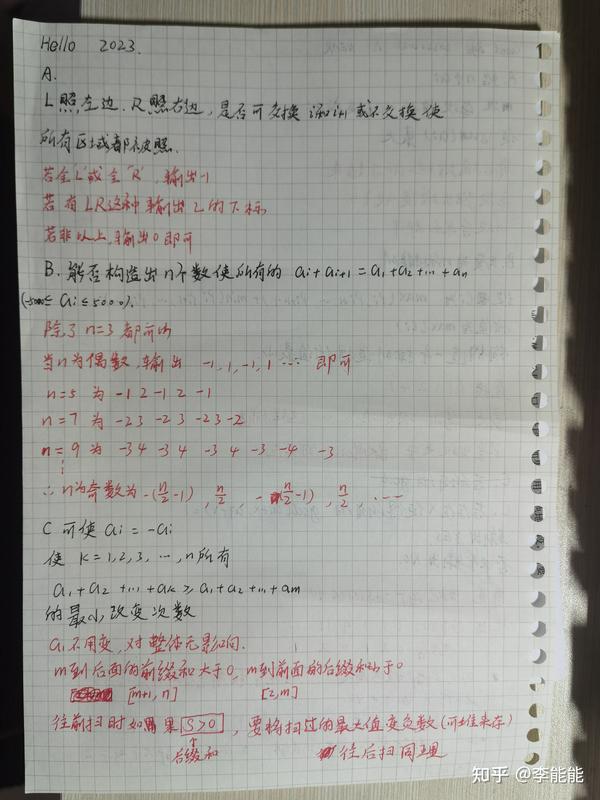 Hello 2023.
A.
L照左边.R照右边,是否可交换 i和i+1 或不交换使
所有区域都被照.
若全'L'或全'R',输出-1
若有LR这种输出L的下标
若非以上,输出0即可
B.能否构造出n个数使所有的 ai+ai+1 = a1+a2+...+an
(-5000≤ ai ≤5000).
除了 n=3 都可以
当n为偶数,输出 -1,1,-1,1 ... 即可
n=5 为 -1 2 -1 2 -1
n=7 为 -2 3 -2 3 -2 3 -2
n=9 为 -3 4 -3 4 -3 4 -3 -4 -3
∴n为奇数为 -(n/2-1), n/2, -(n/2-1), n/2, ...
C 可使 ai = -ai
使 k=1,2,3,...,n所有
a1+a2+...+ak ≥ a1+a2+...+am
的最小改变次数
a1不用变,对整体无影响.
m到后面的前缀和大于0,m到前面的后缀和小于0
[m+1,n] [2,m]
往前扫时如果 S>0, 要将扫过的最大值变负数(可堆来存)
↑
后缀和 往后扫同理
知乎 @李能能